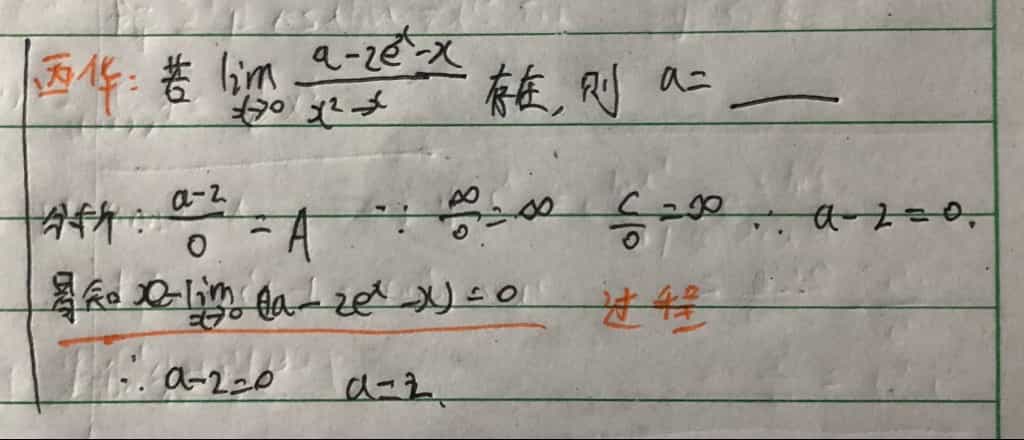 西华: 若 lim x→0 (a-2e^x-x)/(x²-x) 存在, 则 a= ____
分析: (a-2)/0 = A ∵ ∞/0=∞ c/0=∞ ∴ a-2=0.
易知 lim x→0 (a-2e^x-x)=0 过程
∴ a-2=0 a=2.